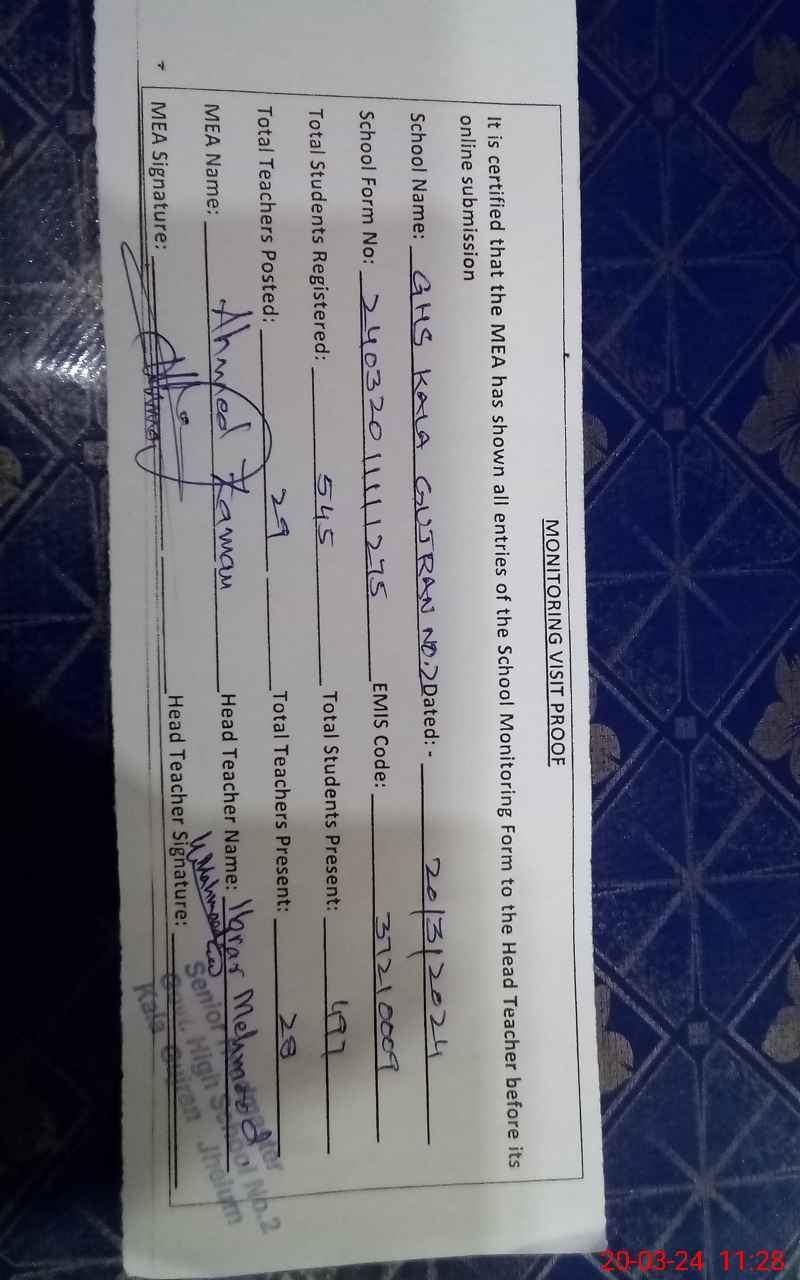 MONITORING VISIT PROOF
It is certified that the MEA has shown all entries of the School Monitoring Form to the Head Teacher before its
online submission
School Name: GHS KALA GUJRAN NO.2 Dated: - 20/3/2024
School Form No: 2403201111275 EMIS Code: 37210009
Total Students Registered: 545 Total Students Present: 497
Total Teachers Posted: 29 Total Teachers Present: 28
MEA Name: Ahmed Zaman Head Teacher Name: Ibrar Mehmood
MEA Signature: Head Teacher Signature:
Senior
Govt. High School No.2
Kala Gujran Jhelum
20-03-24 11:28